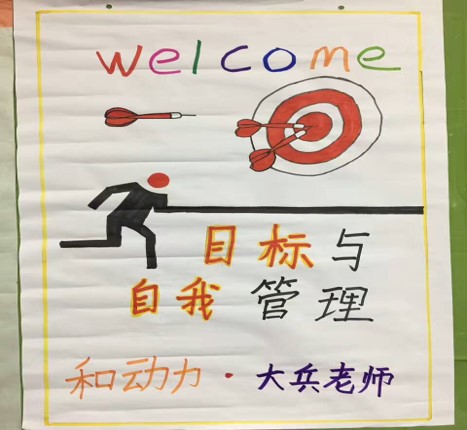 welcome
目标与
自我管理
和动力·大兵老师